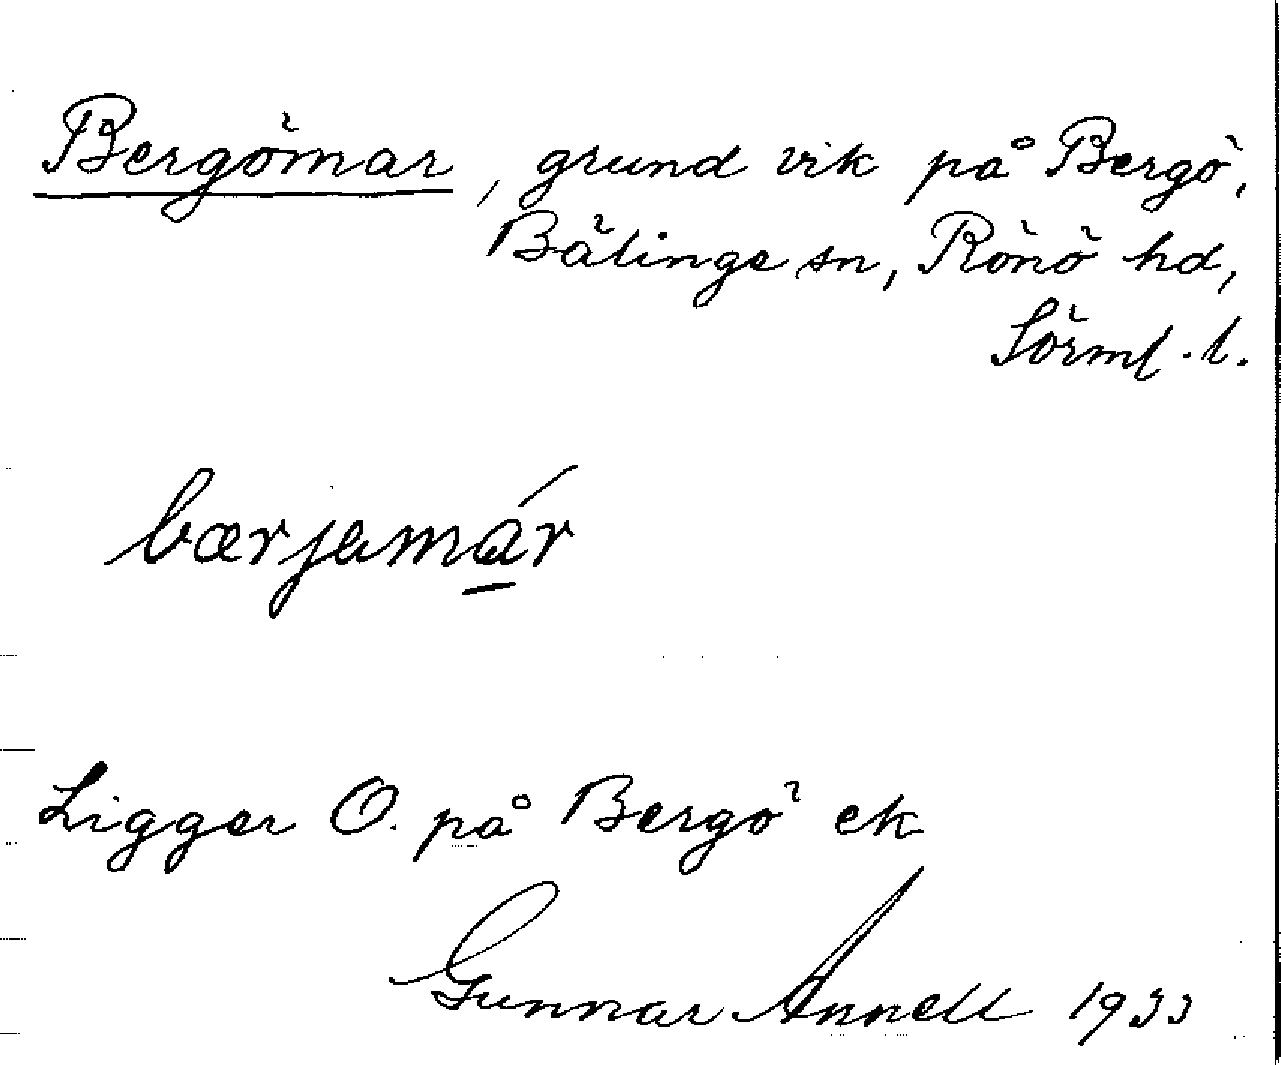 Bergömar, grund vik på Bergö,
Bälinge sn, Rönö hd,
Sörml. l.
bærjamár
Ligger O. på Bergö ek
Gunnar Annell 1933